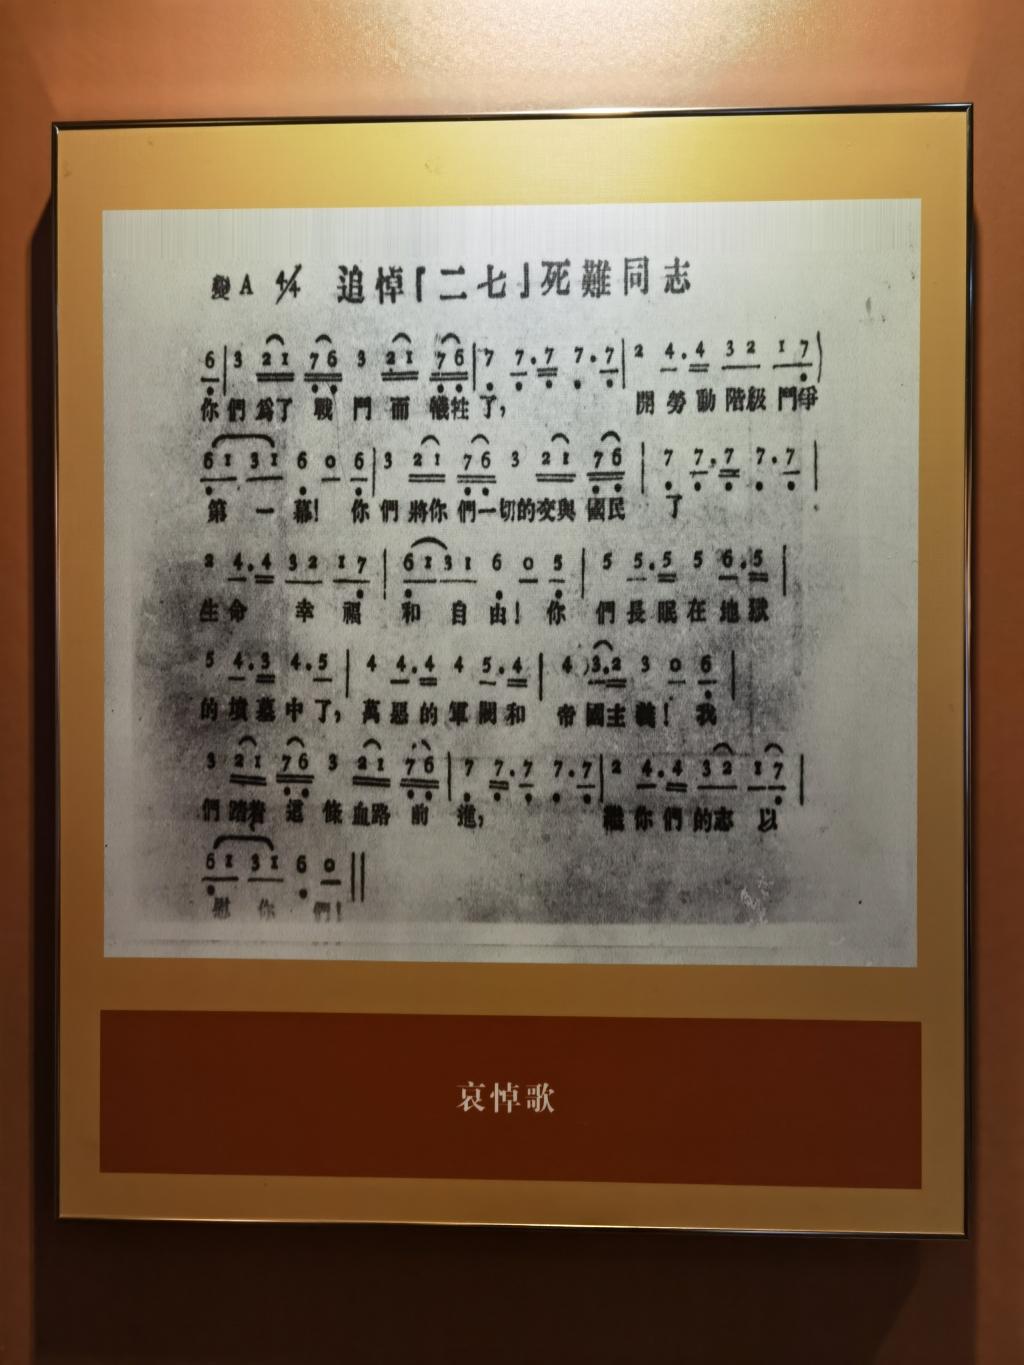 變A 4/4 追悼「二七」死難同志
6|3 21 76 3 21 76|7 7.7 7.7|2 4.4 32 17|
你們爲了戰鬥而犧牲了, 開勞動階級鬥爭
61 31 6 0 6|3 21 76 3 21 76|7 7.7 7.7|
第一幕! 你們將你們一切的交與國民 了
2 4.4 32 17|61 31 6 0 5|5 5.5 5 6.5|
生命 幸福 和自由! 你們長眠在地獄
5 4.3 4.5|4 4.4 4 5.4|4 3.2 3 0 6|
的墳墓中了, 萬惡的軍閥和 帝國主義! 我
3 21 76 3 21 76|7 7.7 7.7|2 4.4 32 17|
們踏着這條血路前進, 繼你們的志以
61 31 6 0||
慰你們!
哀悼歌